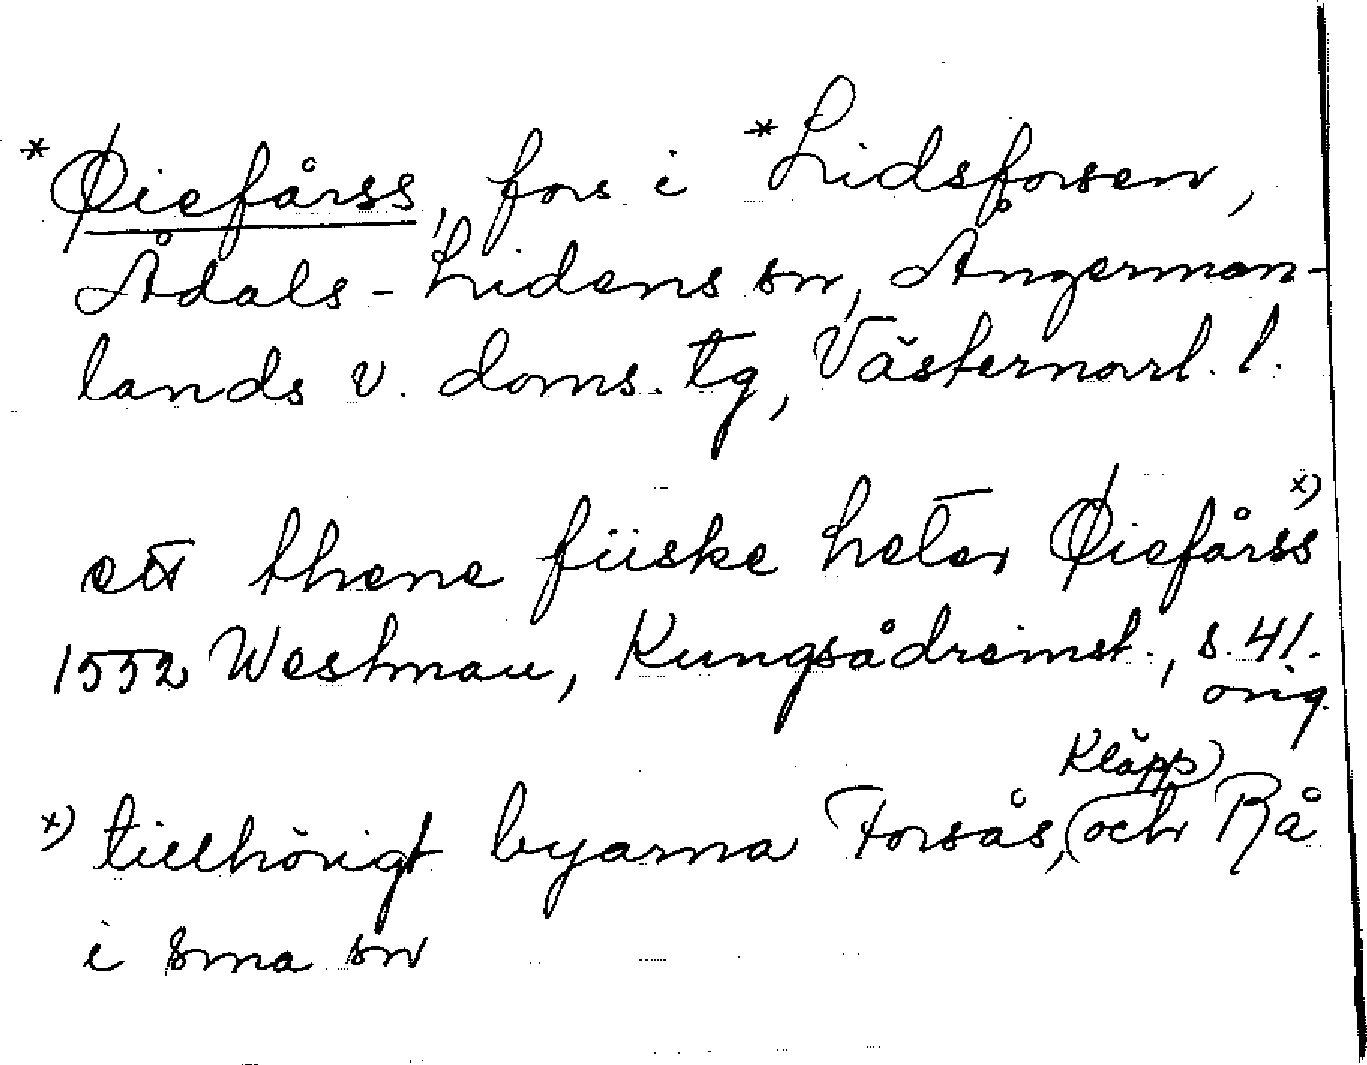 *Øiefårss, fors i *Lidsforsen,
Ådals-Lidens sn, Ångerman-
lands v. doms. tg, Västernorrl. l.
ett thene fiiske heter Øiefårss x)
1552 Westman, Kungsådreinst., s. 41.
orig.
Kläpp
x) tillhörigt byarna Forsås, och Rå
i sma sn